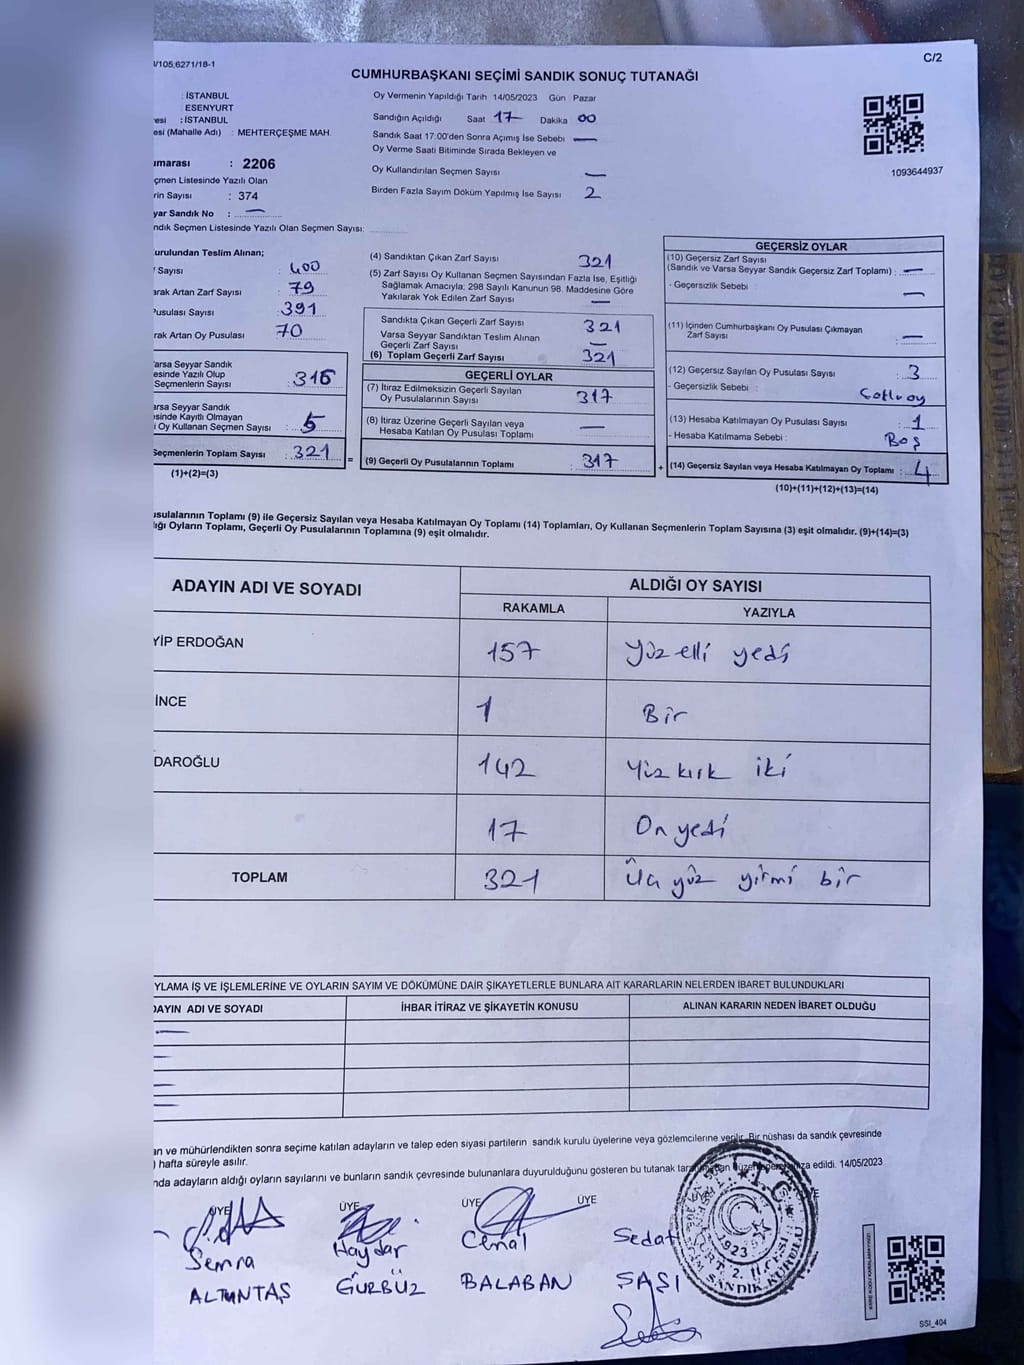 V105,6271/18-1
C/2
CUMHURBAŞKANI SEÇİMİ SANDIK SONUÇ TUTANAĞI
: İSTANBUL
ESENYURT
esi : İSTANBUL
esi (Mahalle Adı) : MEHTERÇEŞME MAH.
umarası : 2206
çmen Listesinde Yazılı Olan
rin Sayısı : 374
yar Sandık No : —
ndık Seçmen Listesinde Yazılı Olan Seçmen Sayısı:
Oy Vermenin Yapıldığı Tarih 14/05/2023 Gün : Pazar
Sandığın Açıldığı Saat 17 Dakika 00
Sandık Saat 17:00'den Sonra Açımış İse Sebebi —
Oy Verme Saati Bitiminde Sırada Bekleyen ve
Oy Kullandırılan Seçmen Sayısı —
Birden Fazla Sayım Döküm Yapılmış İse Sayısı 2
1093644937
urulundan Teslim Alınan;
f Sayısı : 400
arak Artan Zarf Sayısı : 79
usulası Sayısı : 391
rak Artan Oy Pusulası 70
arsa Seyyar Sandık
esinde Yazılı Olup
Seçmenlerin Sayısı : 316
arsa Seyyar Sandık
sinde Kayıtlı Olmayan
i Oy Kullanan Seçmen Sayısı : 5
Seçmenlerin Toplam Sayısı : 321
(1)+(2)=(3)
(4) Sandıktan Çıkan Zarf Sayısı 321
(5) Zarf Sayısı Oy Kullanan Seçmen Sayısından Fazla İse, Eşitliği
Sağlamak Amacıyla; 298 Sayılı Kanunun 98. Maddesine Göre
Yakılarak Yok Edilen Zarf Sayısı —
Sandıkta Çıkan Geçerli Zarf Sayısı 321
Varsa Seyyar Sandıktan Teslim Alınan
Geçerli Zarf Sayısı —
(6) Toplam Geçerli Zarf Sayısı 321
GEÇERLİ OYLAR
(7) İtiraz Edilmeksizin Geçerli Sayılan
Oy Pusulalarının Sayısı : 317
(8) İtiraz Üzerine Geçerli Sayılan veya
Hesaba Katılan Oy Pusulası Toplamı : —
= (9) Geçerli Oy Pusulalarının Toplamı : 317
GEÇERSİZ OYLAR
(10) Geçersiz Zarf Sayısı
(Sandık ve Varsa Seyyar Sandık Geçersiz Zarf Toplamı) : —
- Geçersizlik Sebebi : —
(11) İçinden Cumhurbaşkanı Oy Pusulası Çıkmayan
Zarf Sayısı : —
(12) Geçersiz Sayılan Oy Pusulası Sayısı : 3
- Geçersizlik Sebebi :
(13) Hesaba Katılmayan Oy Pusulası Sayısı : 1
- Hesaba Katılmama Sebebi : Boş
+ (14) Geçersiz Sayılan veya Hesaba Katılmayan Oy Toplamı : 4
(10)+(11)+(12)+(13)=(14)
usulalarının Toplamı (9) ile Geçersiz Sayılan veya Hesaba Katılmayan Oy Toplamı (14) Toplamları, Oy Kullanan Seçmenlerin Toplam Sayısına (3) eşit olmalıdır. (9)+(14)=(3)
lığı Oyların Toplamı, Geçerli Oy Pusulalarının Toplamına (9) eşit olmalıdır.
ADAYIN ADI VE SOYADI
ALDIĞI OY SAYISI
RAKAMLA YAZIYLA
YİP ERDOĞAN 157 Yüz elli yedi
İNCE 1 Bir
DAROĞLU 142 Yüz kırk iki
17 On yedi
TOPLAM 321 Üç yüz yirmi bir
YLAMA İŞ VE İŞLEMLERİNE VE OYLARIN SAYIM VE DÖKÜMÜNE DAİR ŞİKAYETLERLE BUNLARA AİT KARARLARIN NELERDEN İBARET BULUNDUKLARI
DAYIN ADI VE SOYADI İHBAR İTİRAZ VE ŞİKAYETİN KONUSU ALINAN KARARIN NEDEN İBARET OLDUĞU
an ve mühürlendikten sonra seçime katılan adayların ve talep eden siyasi partilerin sandık kurulu üyelerine veya gözlemcilerine verilir. Bir nüshası da sandık çevresinde
) hafta süreyle asılır.
nda adayların aldığı oyların sayılarını ve bunların sandık çevresinde bulunanlara duyurulduğunu gösteren bu tutanak edildi. 14/05/2023
ÜYE ÜYE ÜYE ÜYE
Semra Haydar Cemal Sedat
ALTUNTAŞ GÜRBÜZ BALABAN ŞAŞI
T.C.
1923
SANDIK KURULU
KARE KODU KARALAMAYINIZ!
SSI_404